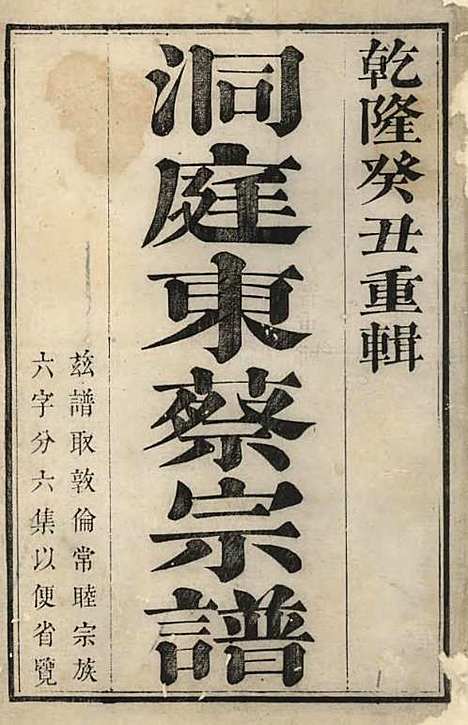 乾隆癸丑重輯
洞庭東蔡宗譜
兹譜取敦倫常睦宗族
六字分六集以便省覽